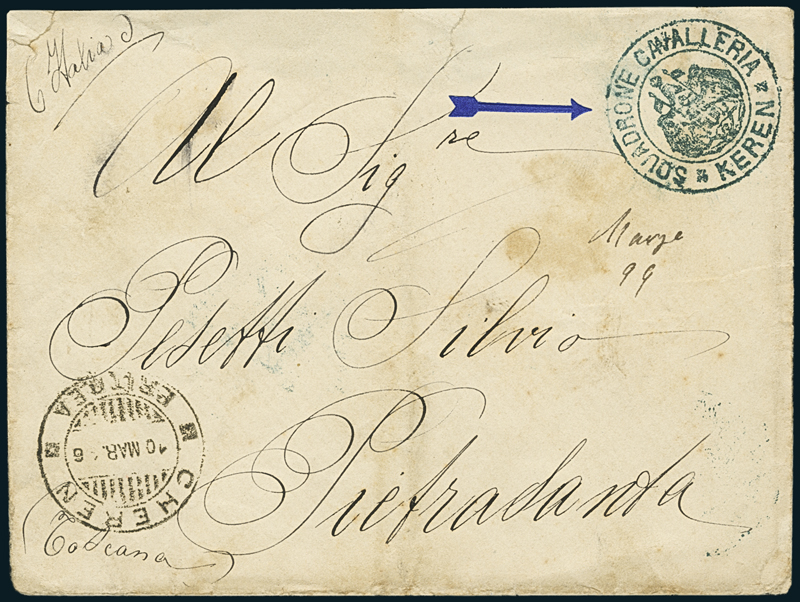 (Italia)
SQUADRONE CAVALLERIA
KEREN
Al Sig.re
Marzo
99
Pesetti Silvio
CHEREN
ERITREA
10 MAR.
Pietrasanta
Toscana